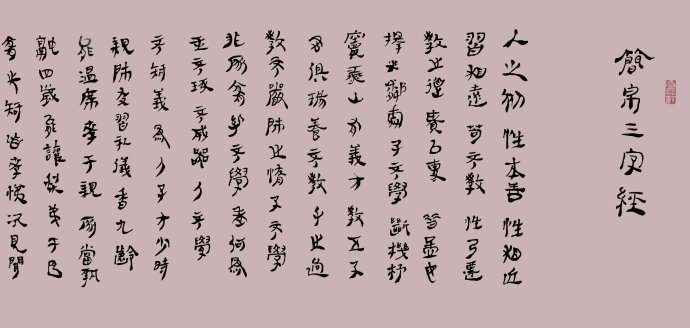 簡帛三字經
人之初 性本善 性相近
習相遠 苟不教 性乃遷
教之道 貴以專 昔孟母
擇鄰處 子不學 斷機杼
竇燕山 有義方 教五子
名俱揚 養不教 父之過
教不嚴 師之惰 子不學
非所宜 幼不學 老何為
玉不琢 不成器 人不學
不知義 為人子 方少時
親師友 習禮儀 香九齡
能溫席 孝于親 所當執
融四歲 能讓梨 弟于長
宜先知 首孝悌 次見聞